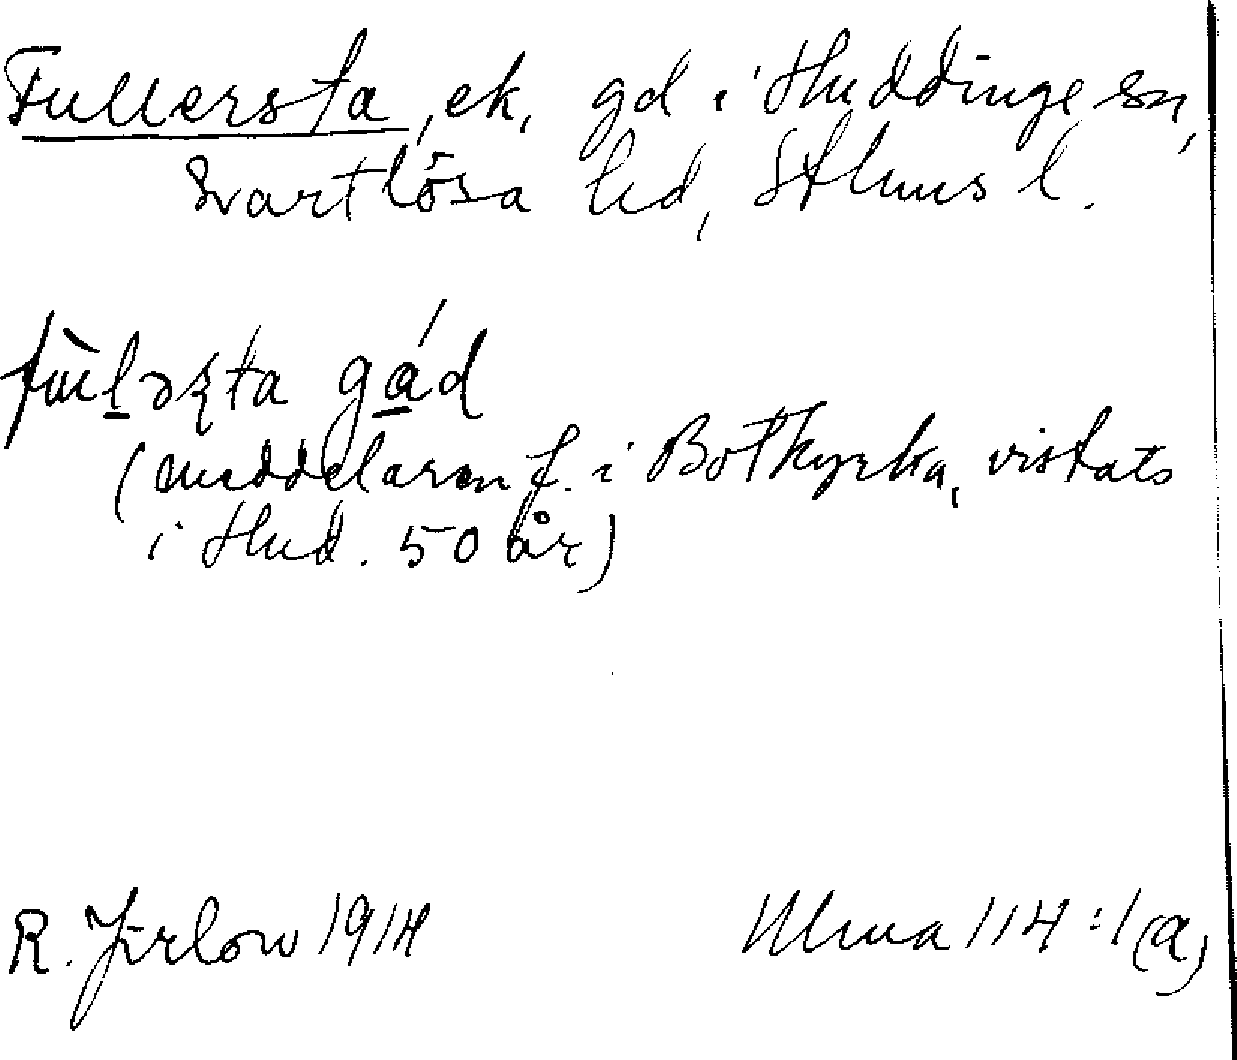 Fullersta, ek, gd i Huddinge sn,
Svartlösa hd, Sthlms l.
fùl̲əʂta gá̲d
(meddelaren f. i Botkyrka, vistats
i Hud. 50 år)
R. Jirlow 1914
Ulma 114:1(a)